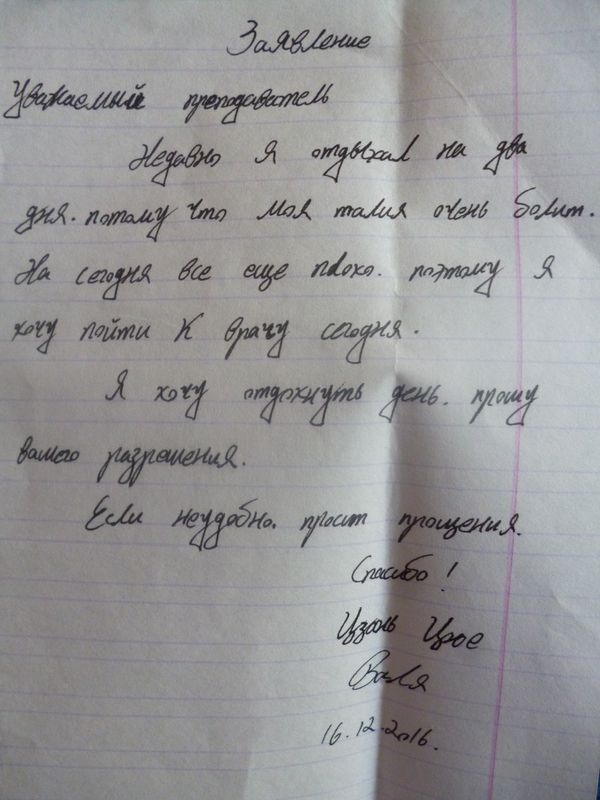 Заявление
Уважаемый преподаватель
Недавно я отдыхал на два
дня. потому что моя талия очень болит.
На сегодня все еще плохо. поэтому я
хочу пойти к врачу сегодня.
Я хочу отдохнуть день. прошу
вашего разрешения.
Если неудобно. просит прощения.
Спасибо!
Цзянь Цзюе
Валя
16.12.2016.